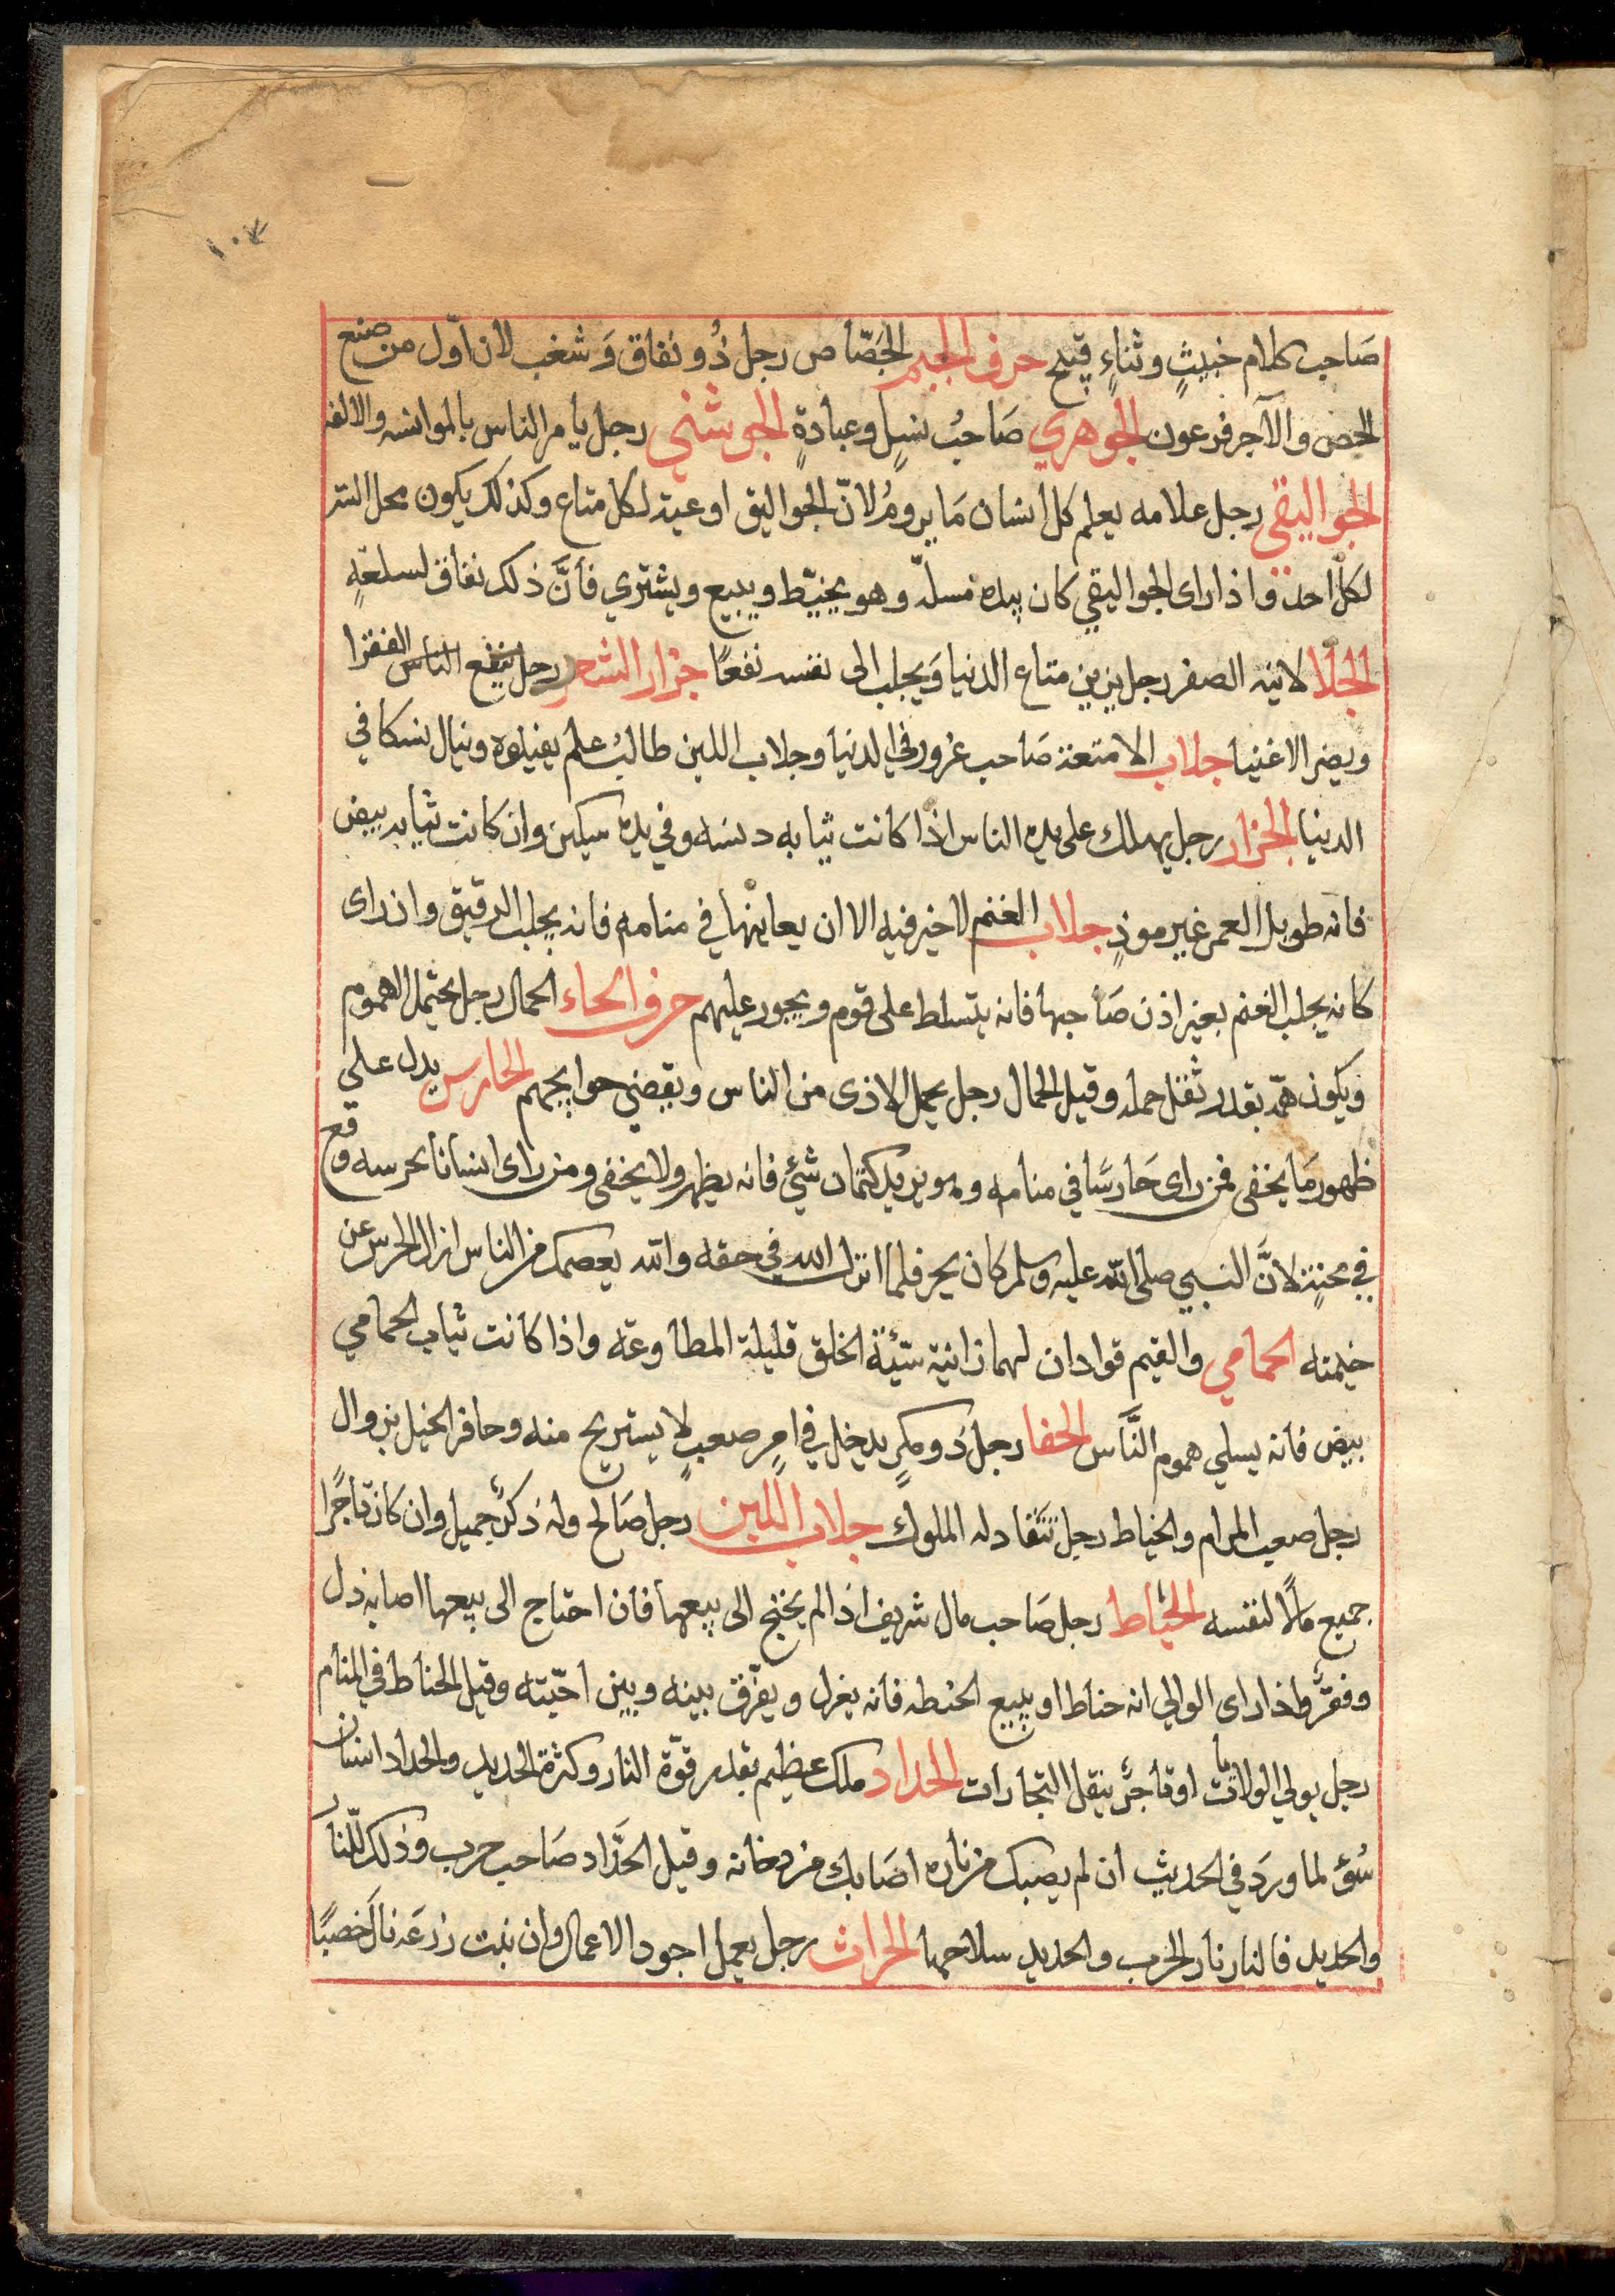 ١٠٧
صَاحب كلام خبيثٍ وثناءٍ قبيح حرف الجيم الجَصّاص رجل ذُو نفاق وَشغب لان اوّل من صنع
الجص والآجر فرعون الجوهري صَاحبُ نسكٍ وعبادةٍ الجوشني رجل يأمر الناس بالموانسه والالفه
الجواليقي رجل علامه يعلم كل انسان مَا يرومُ لانّ الجواليق اوعية لكل متاع وكذلك يكون محل السّر
لكل احد واذا راى الجواليقي كان بيده مسلّه وهو يخيّط ويبيع ويشتري فأنَّ ذلك نفاق لسلعته
الجلا لانية الصفر رجل يزين متاع الدنيا وَيجلب الى نفسه نفعًا جزار الشعر رجل ينفع الناس الفقرا
ويضر الاغنيا جلاب الامتعة صَاحب غرور في الدنيا وجلاب اللبن طالبُ علم يفيلوه وينال نسكا في
الدنيا الجزار رجل يهلك على يده الناس اذا كانت ثيابه دنسه وفي يده سيكين وان كانت ثيابه بيض
فانه طويل العمر غير موذٍ جلاب الغنم لا خير فيه الا ان يعاينها في منامه فانه يجلب الدقيق وان راى
كانه يجلب الغنم بغير اذن صَاحبها فانه يتسلط على قوم ويجور عليهم حرف الحاء الحمال رجل يحتمل الهموم
ويكون همّه بقدر ثقل حمله وقيل الحمال رجل يحمل الاذى من الناس ويقضي حوايجهم الحارس يدل على
ظهور مَا يخفى فمن راى حَارسًا في منامه وهو يريد كتمان شئ فانه يظهر ولا يخفى ومن راى انسانا يحرسه وقع
في محنةٍ لانَّ النبي صلى الله عليه وسلم كان يحر فلما انزل الله في حقه والله يعصمك من الناس ازال الحرس عن
خيمته الحمامي والقيم قوادان لهما زانية سّيئة الخلق قليلة المطاوعه واذا كانت ثياب الحمامي
بيض فانه يسلي هموم النَّاس الحفا رجل ذو مكرٍ يدخل في امرٍ صعبٍ لا يستريح منه وحافر الخيل بزوال
رجل صعب المرام والخياط رجل تنقاد له الملوك جلاب اللبن رجل صَالح وله ذكرٌ جميل وان كان تاجرًا
جميع مالًا لنفسه الحنّاط رجل صَاحب مال شريف اذا لم يحتج الى بيعها فان احتاج الى بيعها اصابه ذل
وفقرٌ واذا راى الوالي انه حناط او يبيع الحنطه فانه يعزل ويفرّق بينه وبين احبّته وقيل الحناط في المنام
رجل يولي الولاة او تاجرٌ ينقل التجارات الحداد ملك عظيم بقدر قوّة النار وكثرة الحديد والحداد انسان
سُوٍ لما ورَد في الحديث ان لم يصبك من ناره اصَابك من دخانه وقيل الحدَّاد صَاحب حرب وذلك للنار
والحديد فالنار نار الحرب والحديد سلاحها الحراث رجل يعمل اجود الاعمال وان نبت زرعَه نال خصبًا